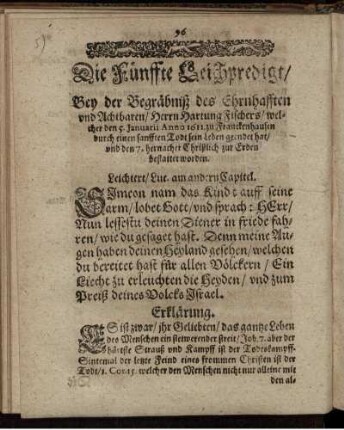 96
Die Fünffte Leichpredigt/
Bey der Begräbniß des Ehrnhafften
vnd Achtbaren/ Herrn Hartung Fischers/ wel-
cher den 5. Januarii Anno 1611. zu Franckenhausen
durch einen sanfften Todt sein Leben geendet hat/
vnd den 7. hernacher Christlich zur Erden
bestattet worden.
Leichtext/ Luc. am andern Capitel.
SImeon nam das Kindt auff seine
Arm/ lobet Gott/ vnd sprach: HErr/
Nun lessestu deinen Diener in friede fah-
ren/ wie du gesaget hast. Denn meine Au-
gen haben deinen Heyland gesehen/ welchen
du bereitet hast für allen Völckern/ Ein
Liecht zu erleuchten die Heyden/ vnd zum
Preiß deines Volcks Israel.
Erklärung.
ES ist zwar/ ihr Geliebten/ das gantze Leben
des Menschen ein stetwerender streit/ Job. 7. aber der
härteste Strauß vnd Kampff ist der Todtskampff.
Sintemal der letzte Feind eines frommen Christen ist der
Todt/ 1. Cor. 15. welcher den Menschen nicht nur alleine mit
den al-